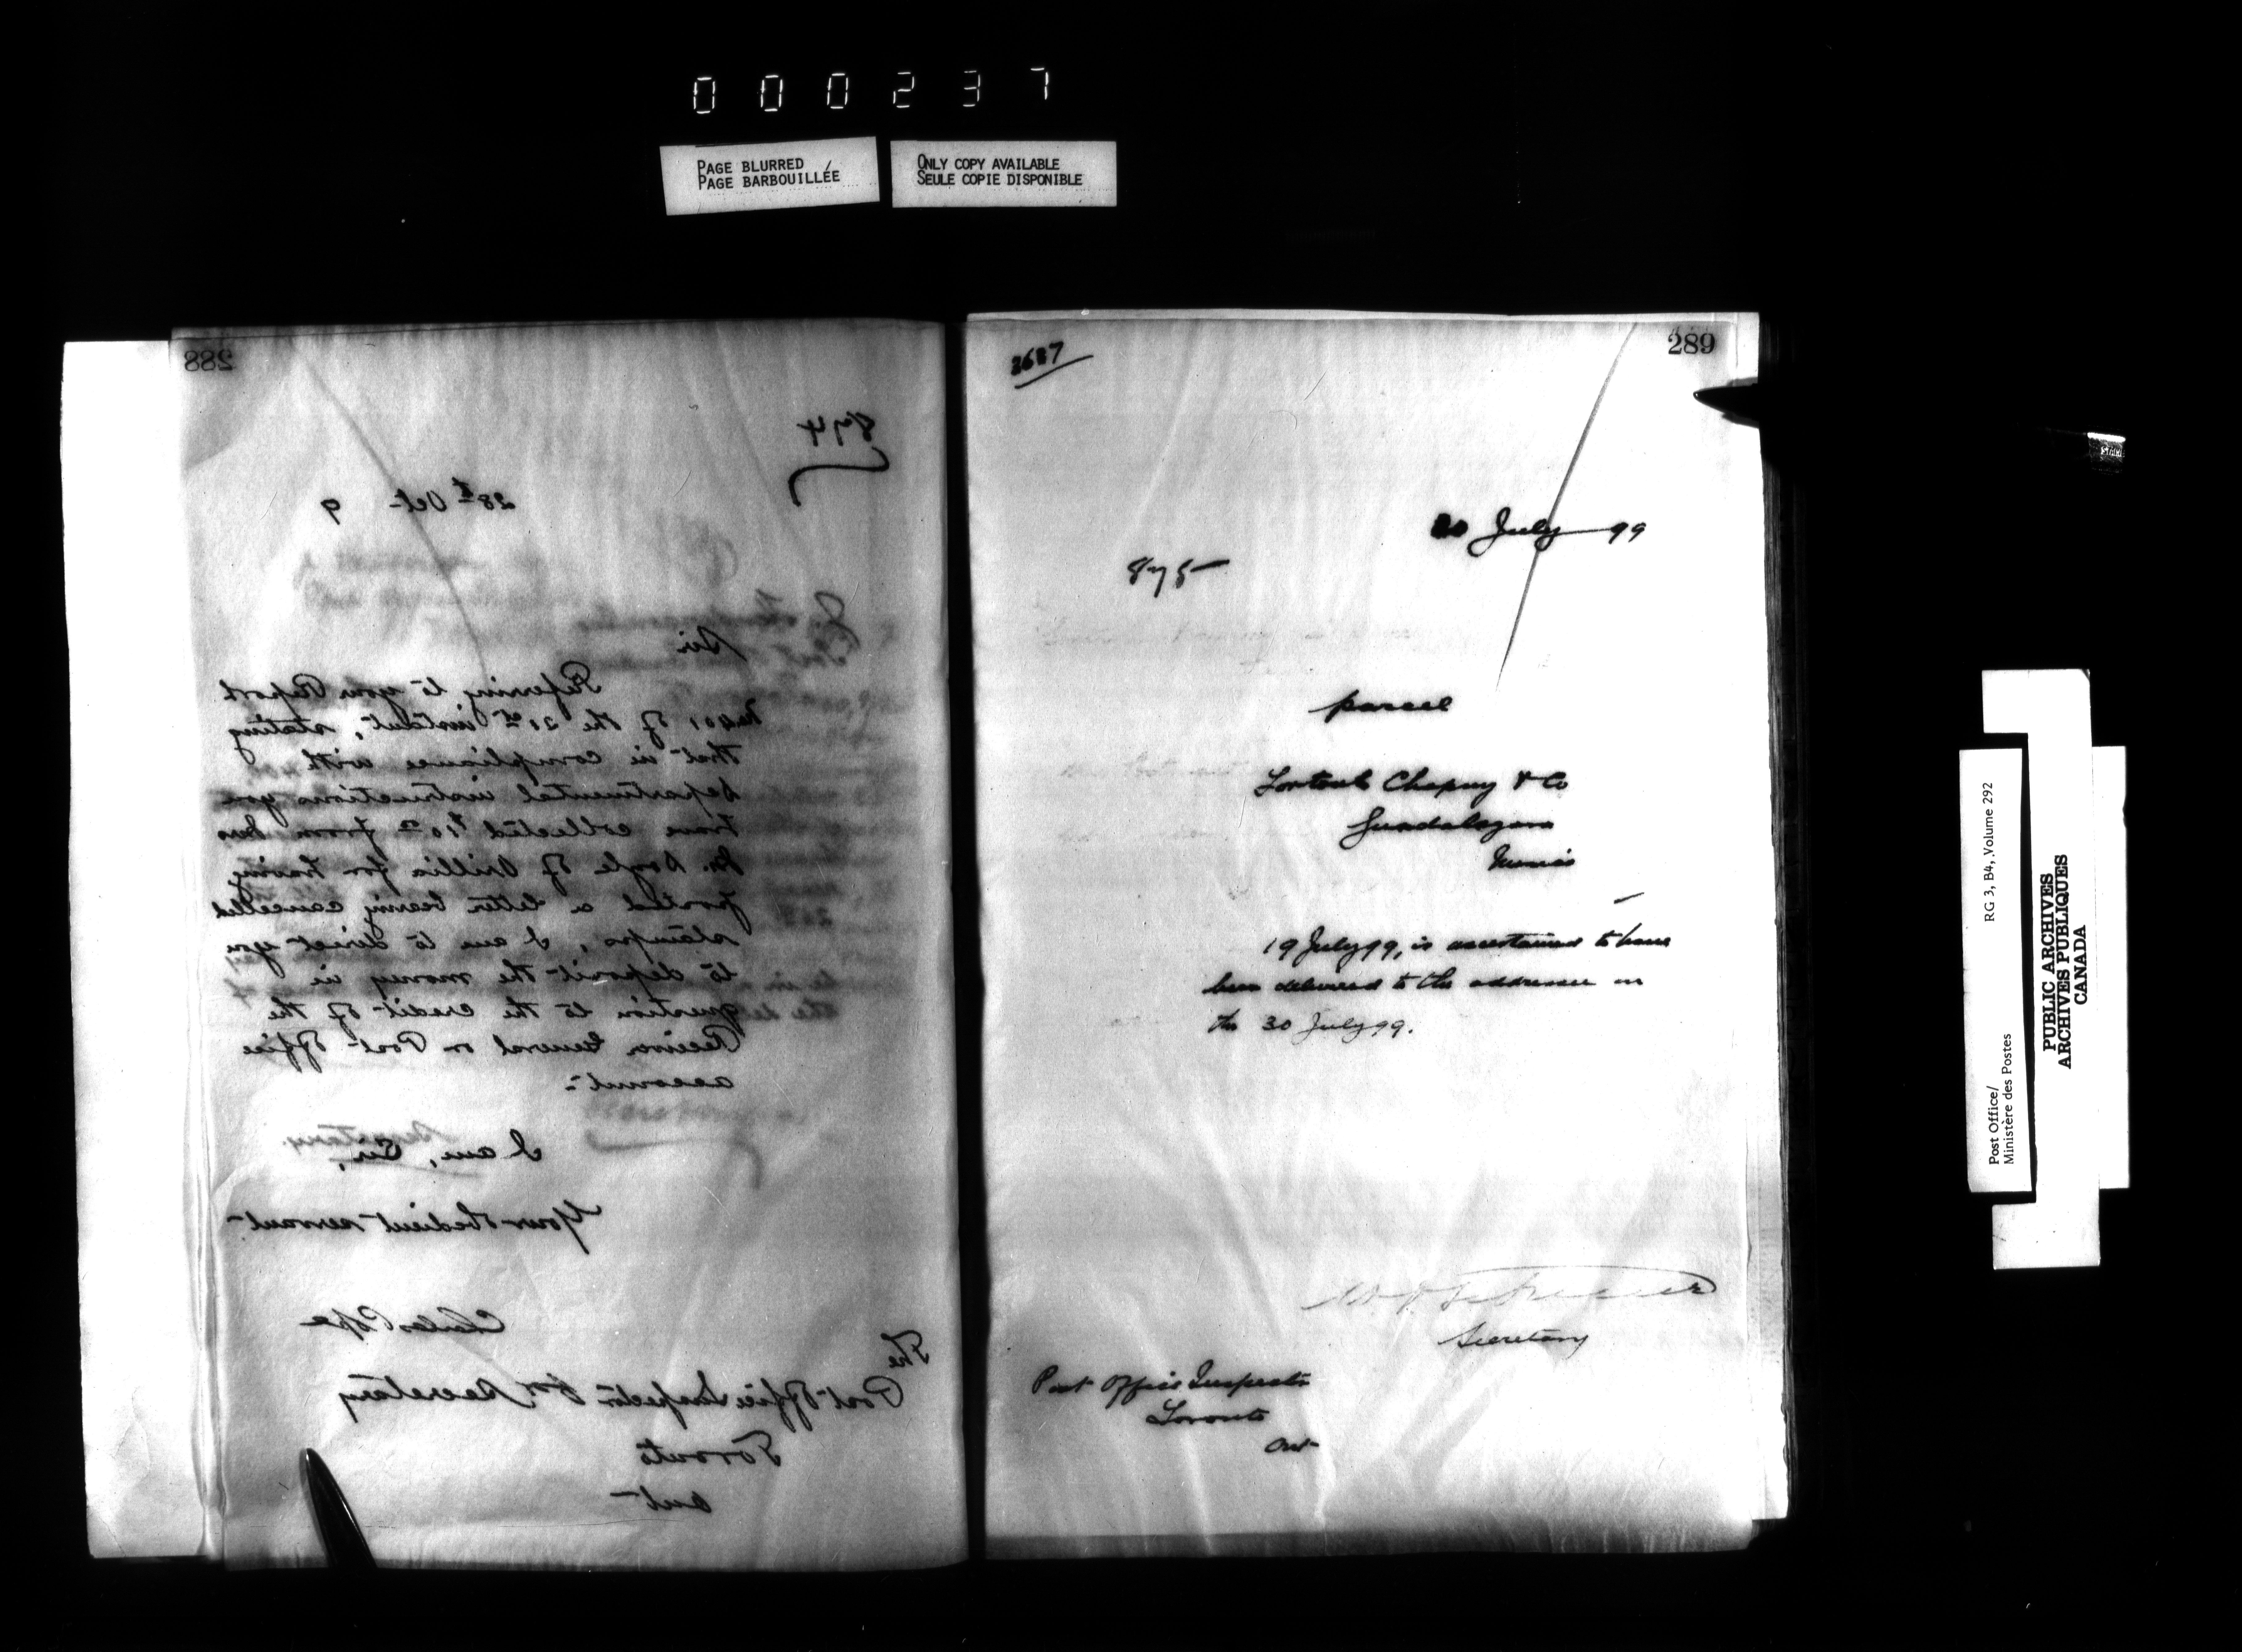 000237
PAGE BLURRED
PAGE BARBOUILLÉE
ONLY COPY AVAILABLE
SEULE COPIE DISPONIBLE
288
874
28th Oct 9
Sir
Referring to your Report
No 401 of the 21st instant, stating
that in compliance with
Departmental instructions you
have collected $10 00 from
Doyle of Orillia for having
posted a letter bearing cancelled
stamps, I am to direct you
to deposit the money in
question to the credit of the
Receiver General on Post Office
account
I am, Sir,
Your obedient servant
Charles Pope
The
Post Office Inspector for Secretary
Toronto
Ont
289
2687
July 99
875
parcel
Chapuy & Co
Guadalajara
Mexico
19 July 99, is ascertained to have
been delivered to the addressee on
the 30 July 99.
Secretary
Post Office Inspector
Toronto
Ont
Post Office/
Ministère des Postes
RG 3, B4, Volume 292
PUBLIC ARCHIVES
ARCHIVES PUBLIQUES
CANADA